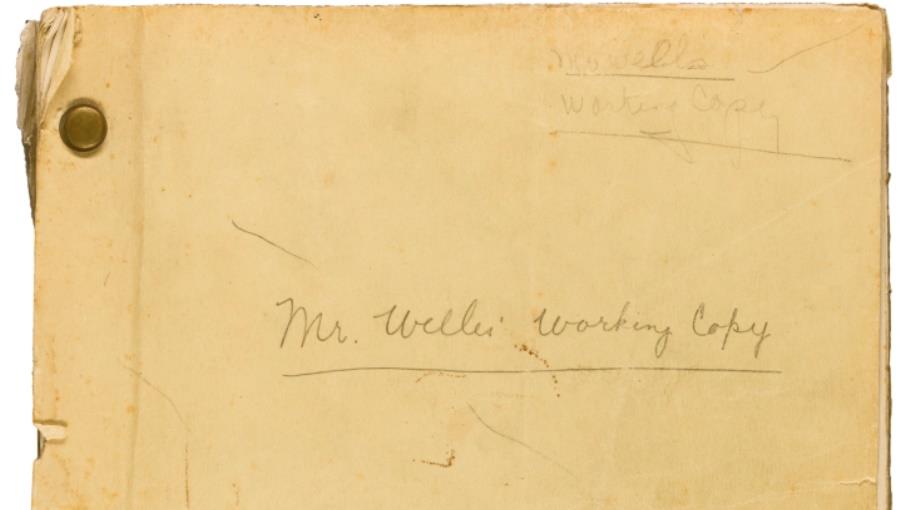 Mr Wells
Working Copy
Mr. Welles' Working Copy